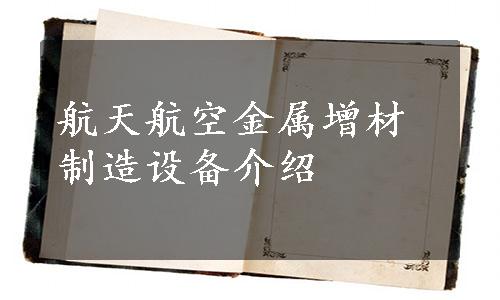 航天航空金属增材
制造设备介绍